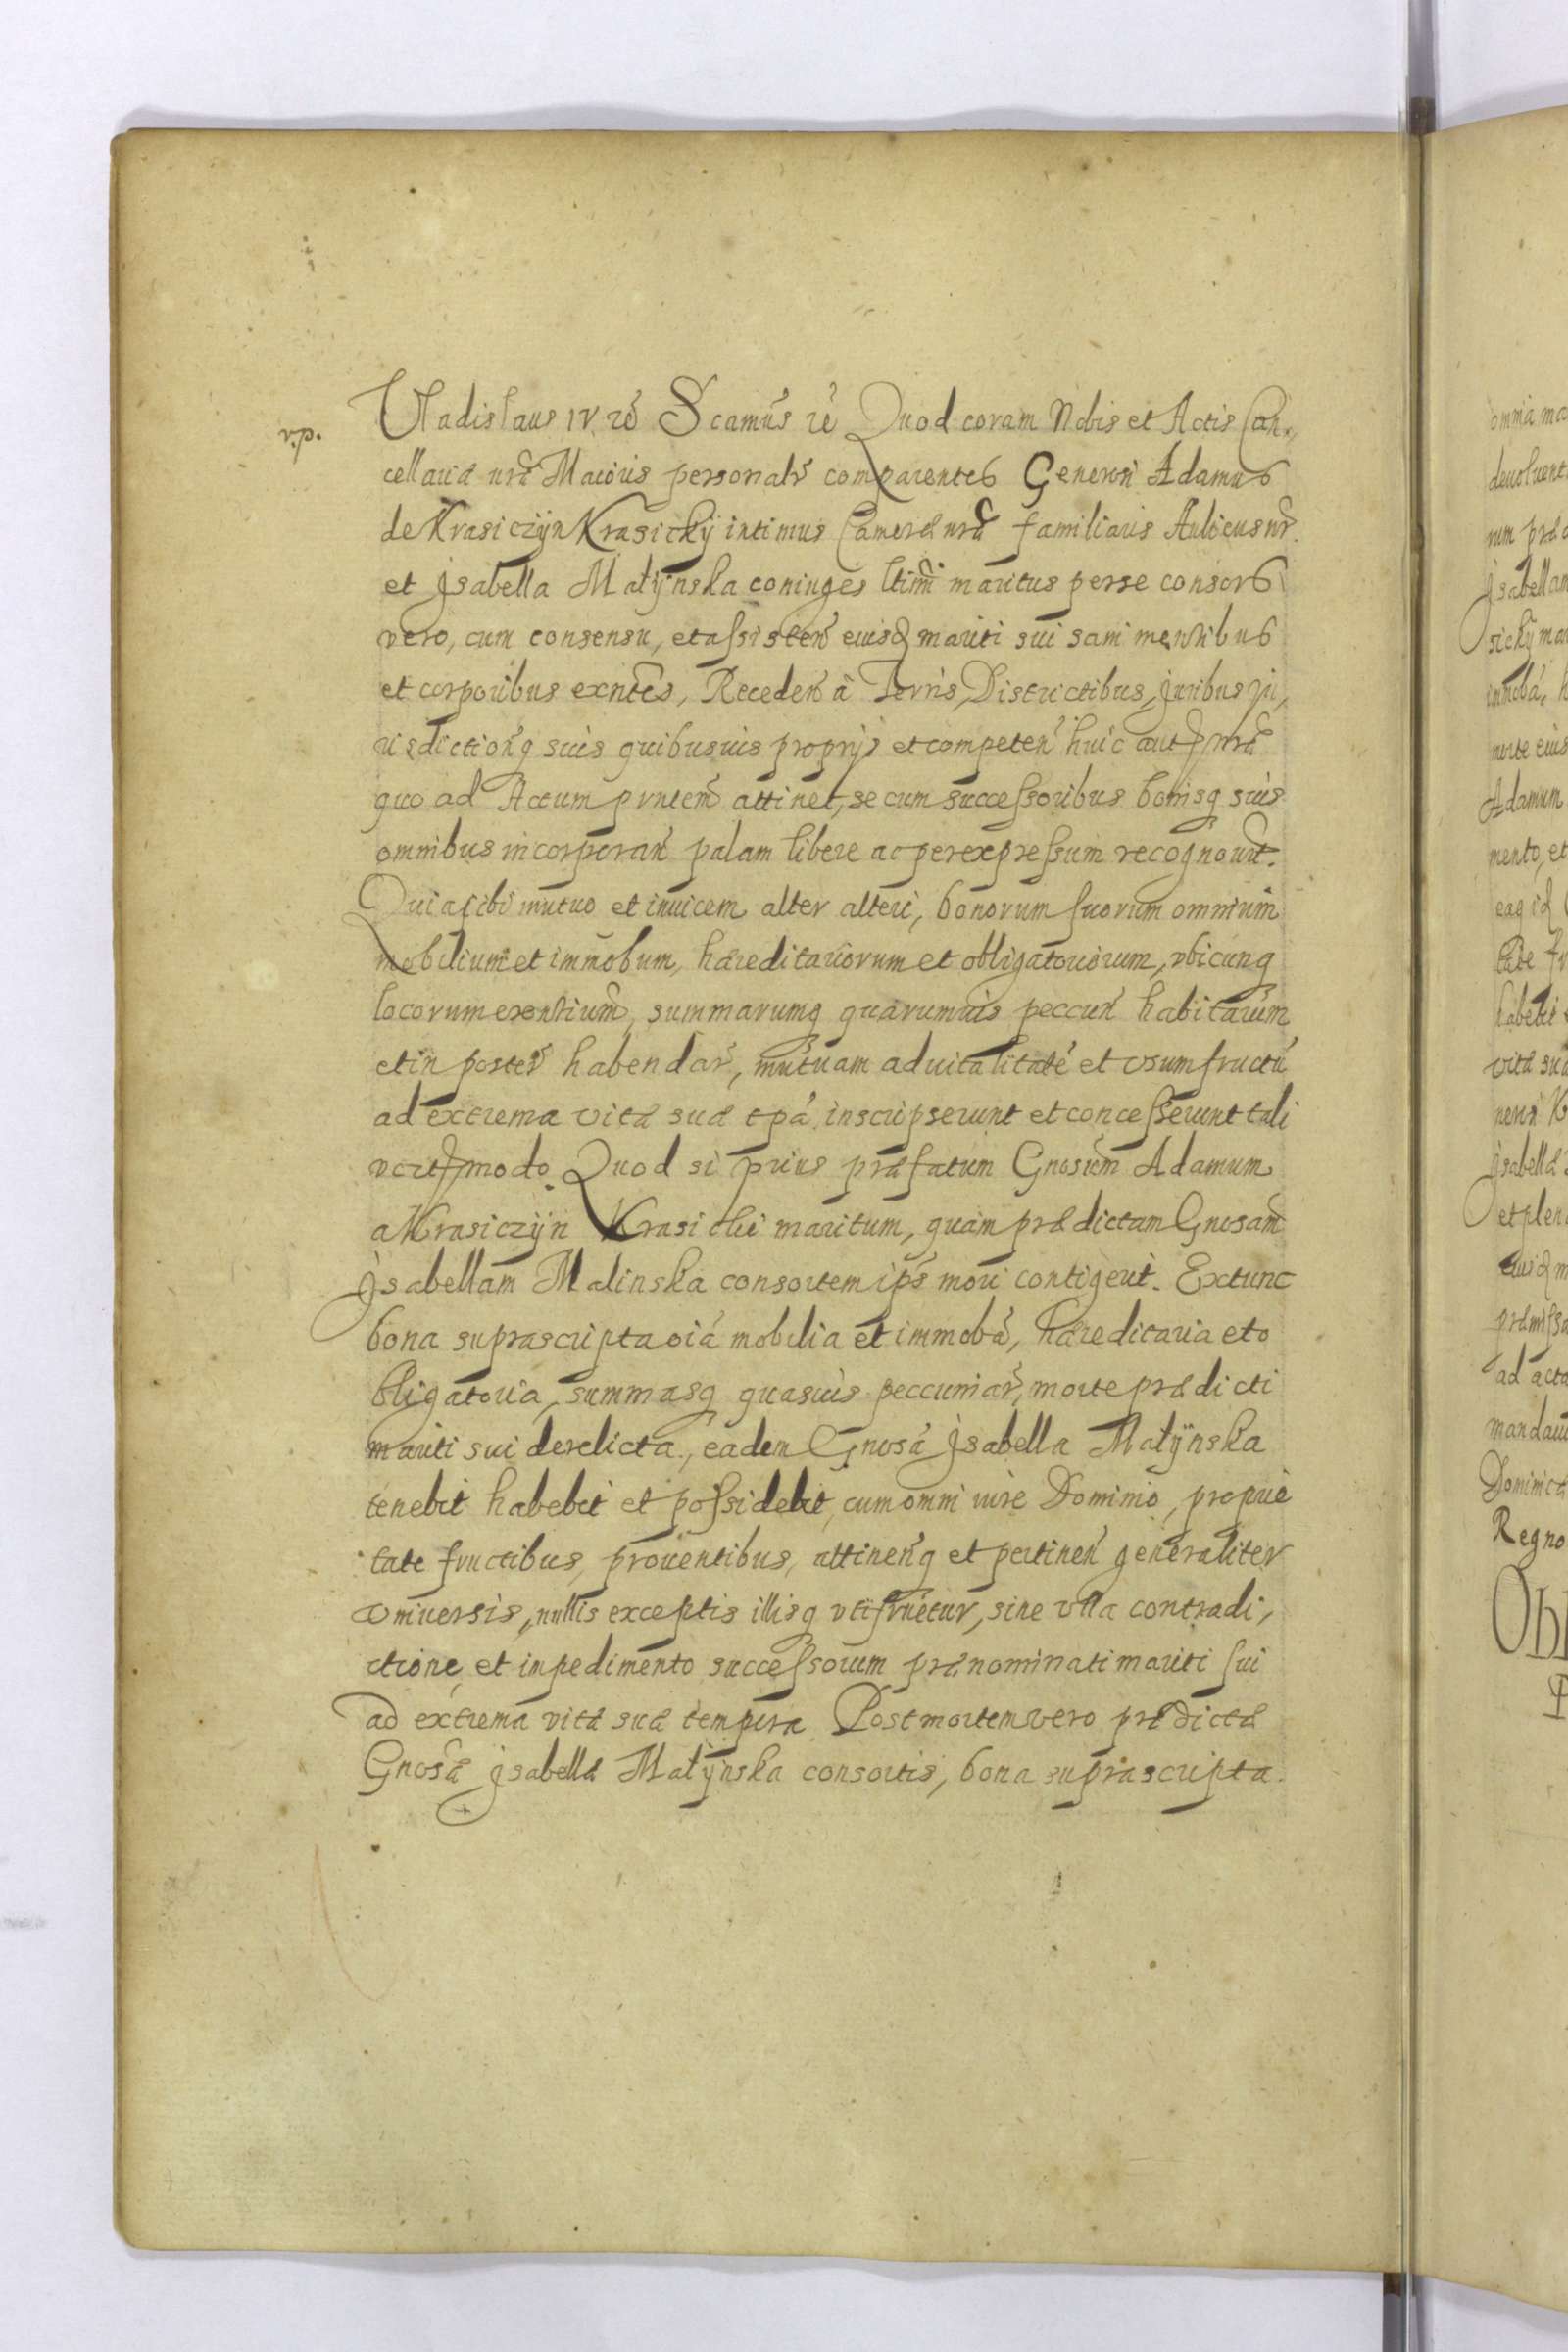 Vladislaus IV. rẽ Scamũs rẽ Quod coram Nobis et Actis Can,
cellariæ nræ Maioris personalr̃ comparentes Generosi Adamus
de Krasiczÿn Krasickÿ intimus Cameræ nræ familiaris Aulicus nr̃.
et Jsabella Malÿnska coniuges ltimi maritus per se consors
vero, cum consensu, et assisteñ eiusd mariti sui sani mentibus
et corporibus exñtes, Recedeñ à Terris, Districtibus, Juribus Ju,
risdictionq suis quibusuis proprijs et competeñ huic aut nræ
quo ad Actum pñtem attinet, se cum successoribus bonisq suis
omnibus incorporañ palam libere ac per expressum recognouer̃.
Quia sibi mutuo et inuicem alter alteri, bonorum suorum omnium
mobilium et immobum, hæreditariorum et obligatoriorum, vbicunq
locorum exentium, summarumq quarumuis peccuñ habitarum
et in poster̃ habendar̃, mutuam aduitalitatẽ et vsumfructũ
ad extrema vitæ suæ tpã inscripserunt et concesserunt tali
modo. Quod si prius præfatum Gnosum Adamum
a Krasiczÿn Krasicki maritum, quàm prædictam Gnosam
Jsabellam Malinska consortem ips mori contigerit. Extunc
bona suprascripta oiã mobilia et immobã, hæreditaria et o
bligatoria, summasq quasuis peccuniar̃, morte prædicti
mariti sui derelicta, eadem Gnosã Jsabella Malÿnska
tenebit habebit et possidebit, cum omni iure Dominio, proprie
tate fructibus, prouentibus, attineñq et pertineñ generaliter
vniuersis, nullis exceptis illisq vtifruetur, sine vlla contradi,
ctione et inpedimento successorum prænominati mariti sui
ad extrema vitæ suæ tempora. Post mortem vero prædictæ
Gnosæ Jsabellæ Malÿnska consortis, bona suprascripta
omnia
deuoluent
rum præ
Jsabellam
sickÿ
immobã,
morte eius
Adamum
mento, et
habebit
vitæ suæ
Jsabellæ
ad acta
Regno